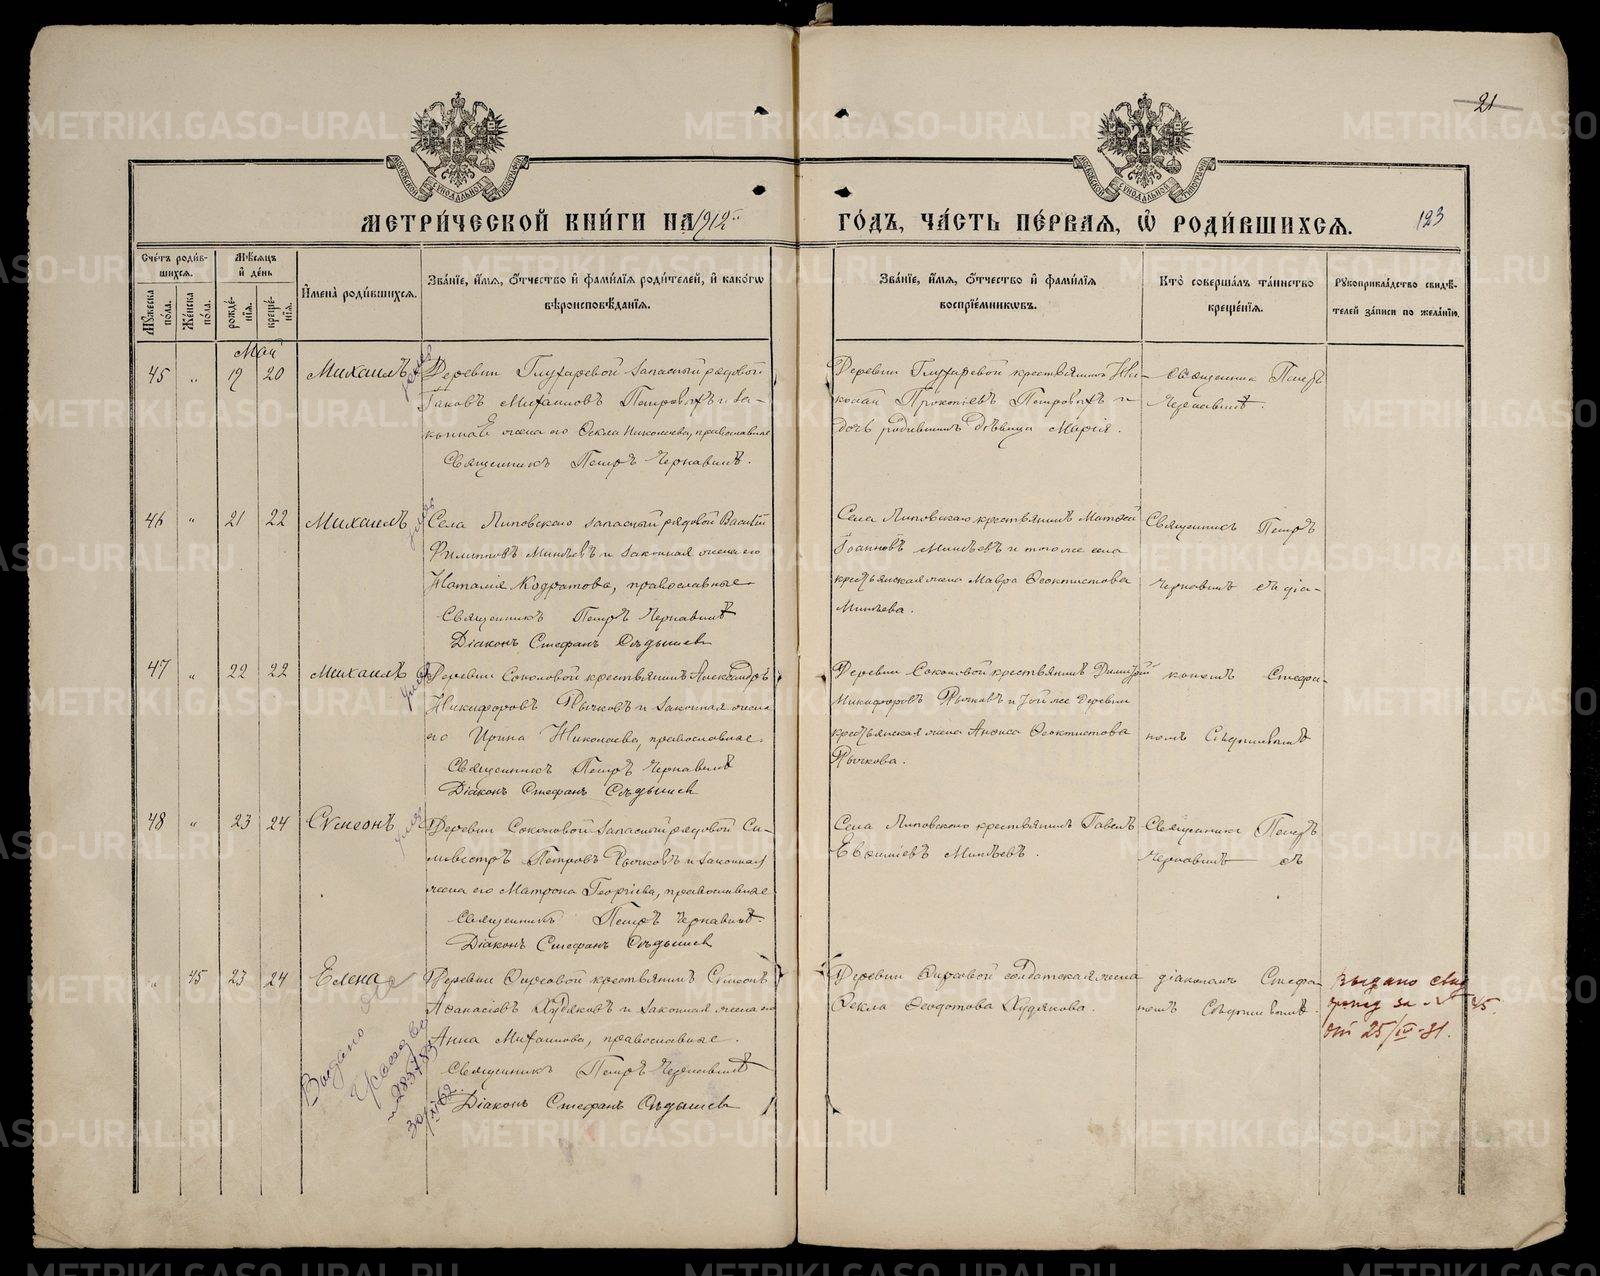 21
МЕТРИ́ЧЕСКОЙ КНИ́ГИ НА 1912
ГО́ДЪ, ЧА́СТЬ ПЕ́РВАЯ, Ѽ РОДИ́ВШИХСЯ.
123
Сче́тъ роди́в-
шихся.
Му́жеска по́ла.
Же́нска по́ла.
Мѣ́сяцъ и де́нь
рожде́-
нія.
креще́-
нія.
И́мена роди́вшихся.
Зва́ніе, и́мя, о́тчество и фами́лія роди́телей, и како́гѡ
вѣроисповѣ́данія.
Зва́ніе, и́мя, о́тчество и фами́лія
воспріе́мникѡвъ.
Кто̀ соверша́лъ та́инство
креще́нія.
Рꙋкоприкла́дство свидѣ́-
телей за́писи по жела́нію.
Май
45 " 19 20 Михаилъ
Деревни Глухаревой запасный рядовой
Іаковъ Михаиловъ Петровыхъ и за-
конная жена его Ѳекла Николаева, православные
Священникъ Петръ Чернавинъ.
Деревни Глухаревой крестьянинъ Ни-
колай Прокопіевъ Петровыхъ и
дочь родившихъ дѣвица Марія.
Священникъ Петръ
Чернавинъ.
46 " 21 22 Михаилъ
Села Липовскаго запасный рядовой Василій
Филипповъ Минѣевъ и законная жена его
Наталія Кодратова, православные
Священникъ Петръ Чернавинъ
Діаконъ Стефанъ Сѣдышев
Села Липовскаго крестьянинъ Матѳей
Іоанновъ Минѣевъ и того же села
крестьянская жена Мавра Ѳеоктистова
Минѣева.
Священникъ Петръ
Чернавинъ съ діа-
47 " 22 22 Михаилъ
Деревни Соколовой крестьянинъ Александръ
Никифоровъ Рычковъ и законная жена
его Ирина Николаева, православные.
Священникъ Петръ Чернавинъ
Діаконъ Стефанъ Сѣдышев
Деревни Соколовой крестьянинъ Димитрій
Никифоровъ Рычковъ и той же деревни
крестьянская жена Анѳиса Ѳеоктистова
Рычкова.
кономъ Стефа-
номъ
48 " 23 24 Сѵмеонъ
Деревни Соколовой запасный рядовой Си-
львестръ Петровъ Рычковъ и законная
жена его Матрона Георгіева, православные
Священникъ Петръ Чернавинъ.
Діаконъ Стефанъ Сѣдышев
Села Липовскаго крестьянинъ Павелъ
Евѳиміевъ Минѣевъ.
Священникъ Петръ
Чернавинъ съ
" 45 23 24 Елена
Деревни Фирсовой крестьянинъ Сѵмеонъ
Аѳанасіевъ Худяковъ и законная жена его
Анна Михаилова, православные.
Священникъ Петръ Чернавинъ
Діаконъ Стефанъ Сѣдышев
Деревни Фирсовой солдатская жена
Ѳекла Ѳеодотова Худякова.
діакономъ Стефа-
номъ
Выдано свид
за № 45.
25/IV-31.
Выдано
30/XI 62
METRIKI.GASO-URAL.RU